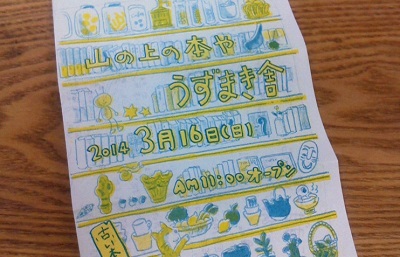 山の上の本や
うずまき舎
2014 3月16日(日)
AM11:00オープン
古い本